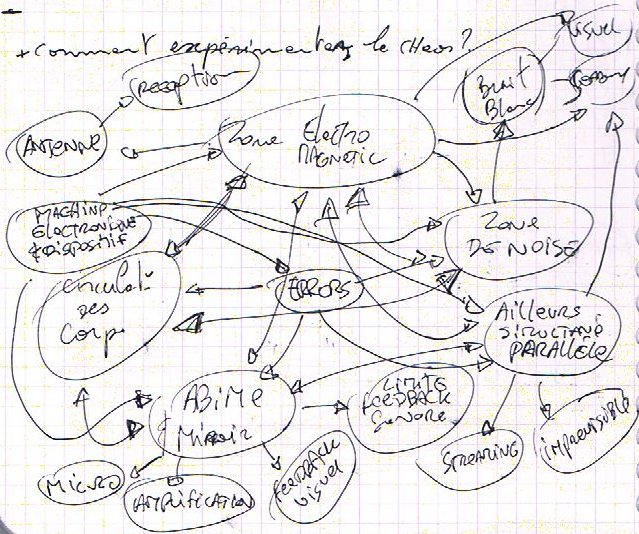 + Comment expérimenter le CHAOS?
Reception
ANTENNE
Zone Electro
MAGNETIC
Bruit
Blanc
Visuel
MACHINE
ELECTRONIQUE
& DISPOSITIF
Zone
DE NOISE
circulati
des
Corps
ERRORS
AILLEURS
SIMULTANÉ
PARALLÈLE
ABIME
Miroir
LIMITE
FEEDBACK
Sonore
MICRO
AMPLIFICATION
FEEDBACK
Visuel
STREAMING
IMPREVISIBLE